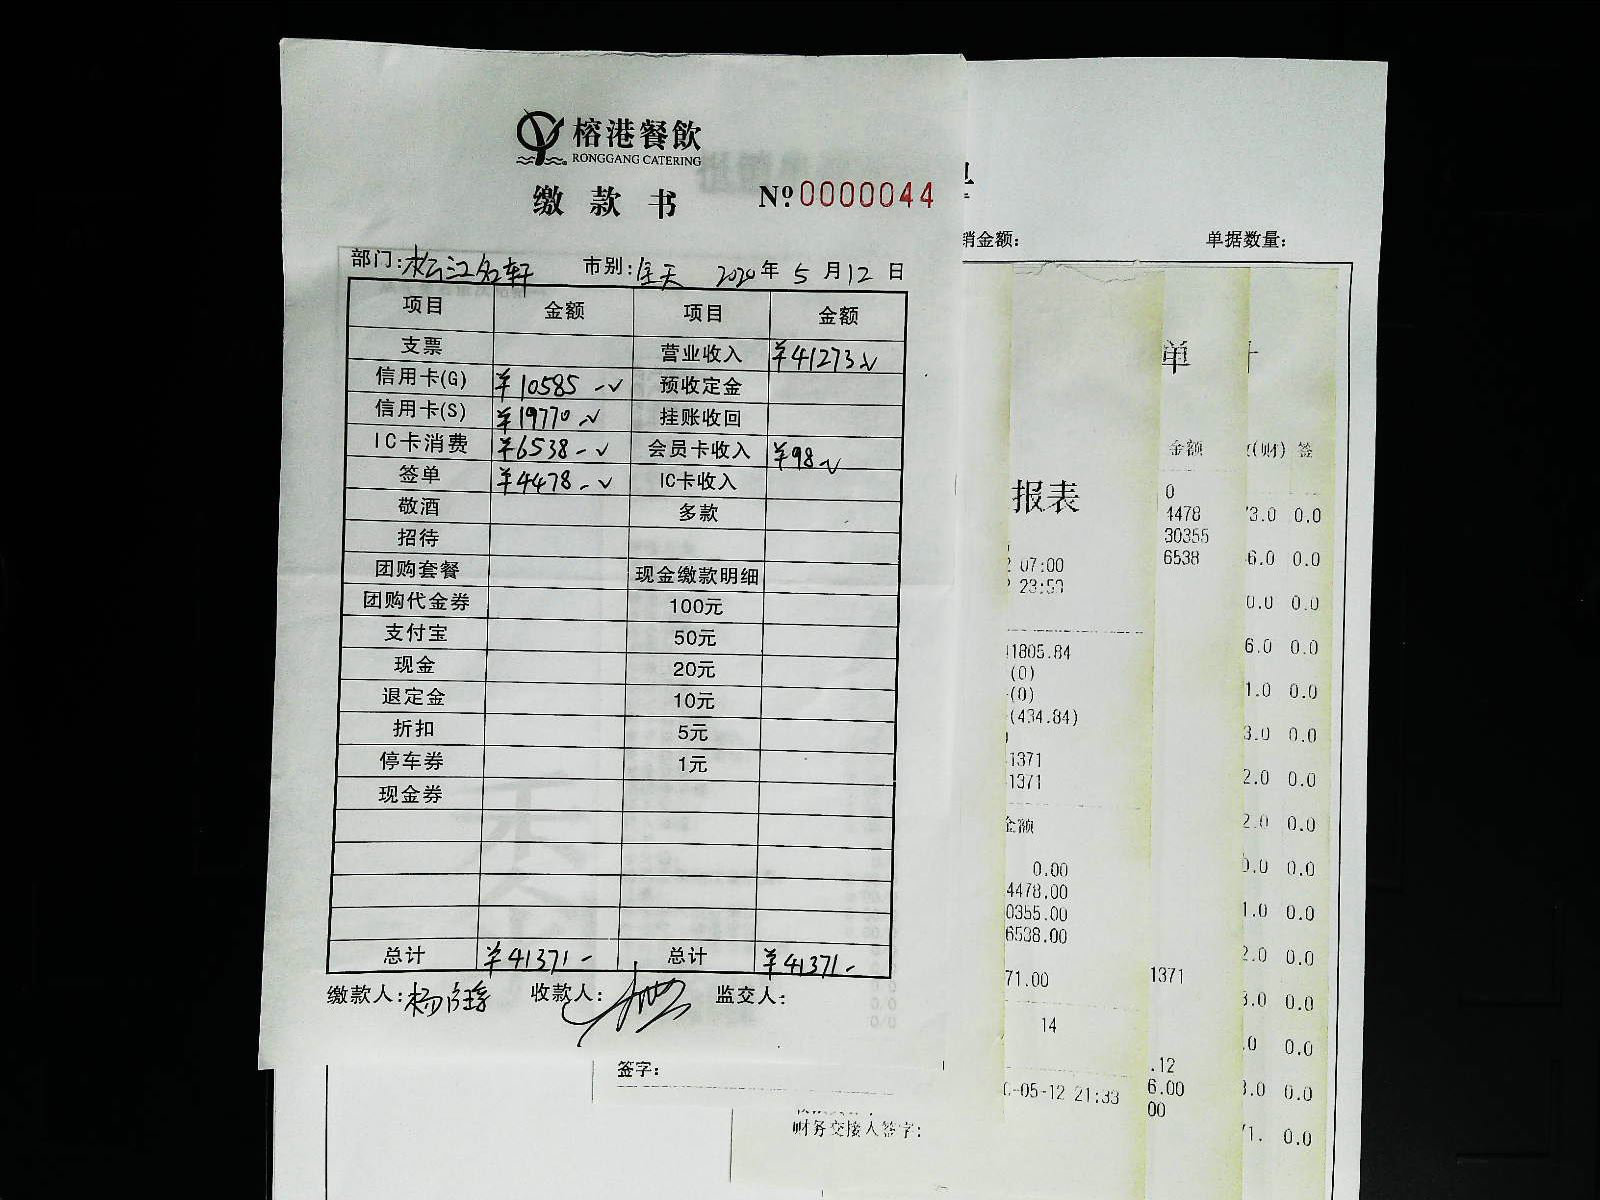 榕港餐飲
RONGGANG CATERING
缴款书 №0000044
部门:松江名轩 市别:全天 2020年5月12日
项目 金额 项目 金额
支票 营业收入 ¥41273
信用卡(G) ¥10585 预收定金
信用卡(S) ¥19770 挂账收回
IC卡消费 ¥6538 会员卡收入 ¥98
签单 ¥4478 IC卡收入
敬酒 多款
招待
团购套餐 现金缴款明细
团购代金券 100元
支付宝 50元
现金 20元
退定金 10元
折扣 5元
停车券 1元
现金券
总计 ¥41371 总计 ¥41371
缴款人: 收款人: 监交人:
签字:
财务交接人签字:
销金额: 单据数量:
报表
07:00
23:59
1805.84
(0)
(0)
(434.84)
1371
1371
金额
0.00
4478.00
0355.00
6538.00
71.00
14
-05-12 21:33
单
金额
0
4478
30355
6538
1371
.12
6.00
00
(财) 签
3.0 0.0
6.0 0.0
0.0 0.0
6.0 0.0
1.0 0.0
3.0 0.0
2.0 0.0
2.0 0.0
0.0 0.0
1.0 0.0
2.0 0.0
3.0 0.0
.0 0.0
3.0 0.0
71. 0.0